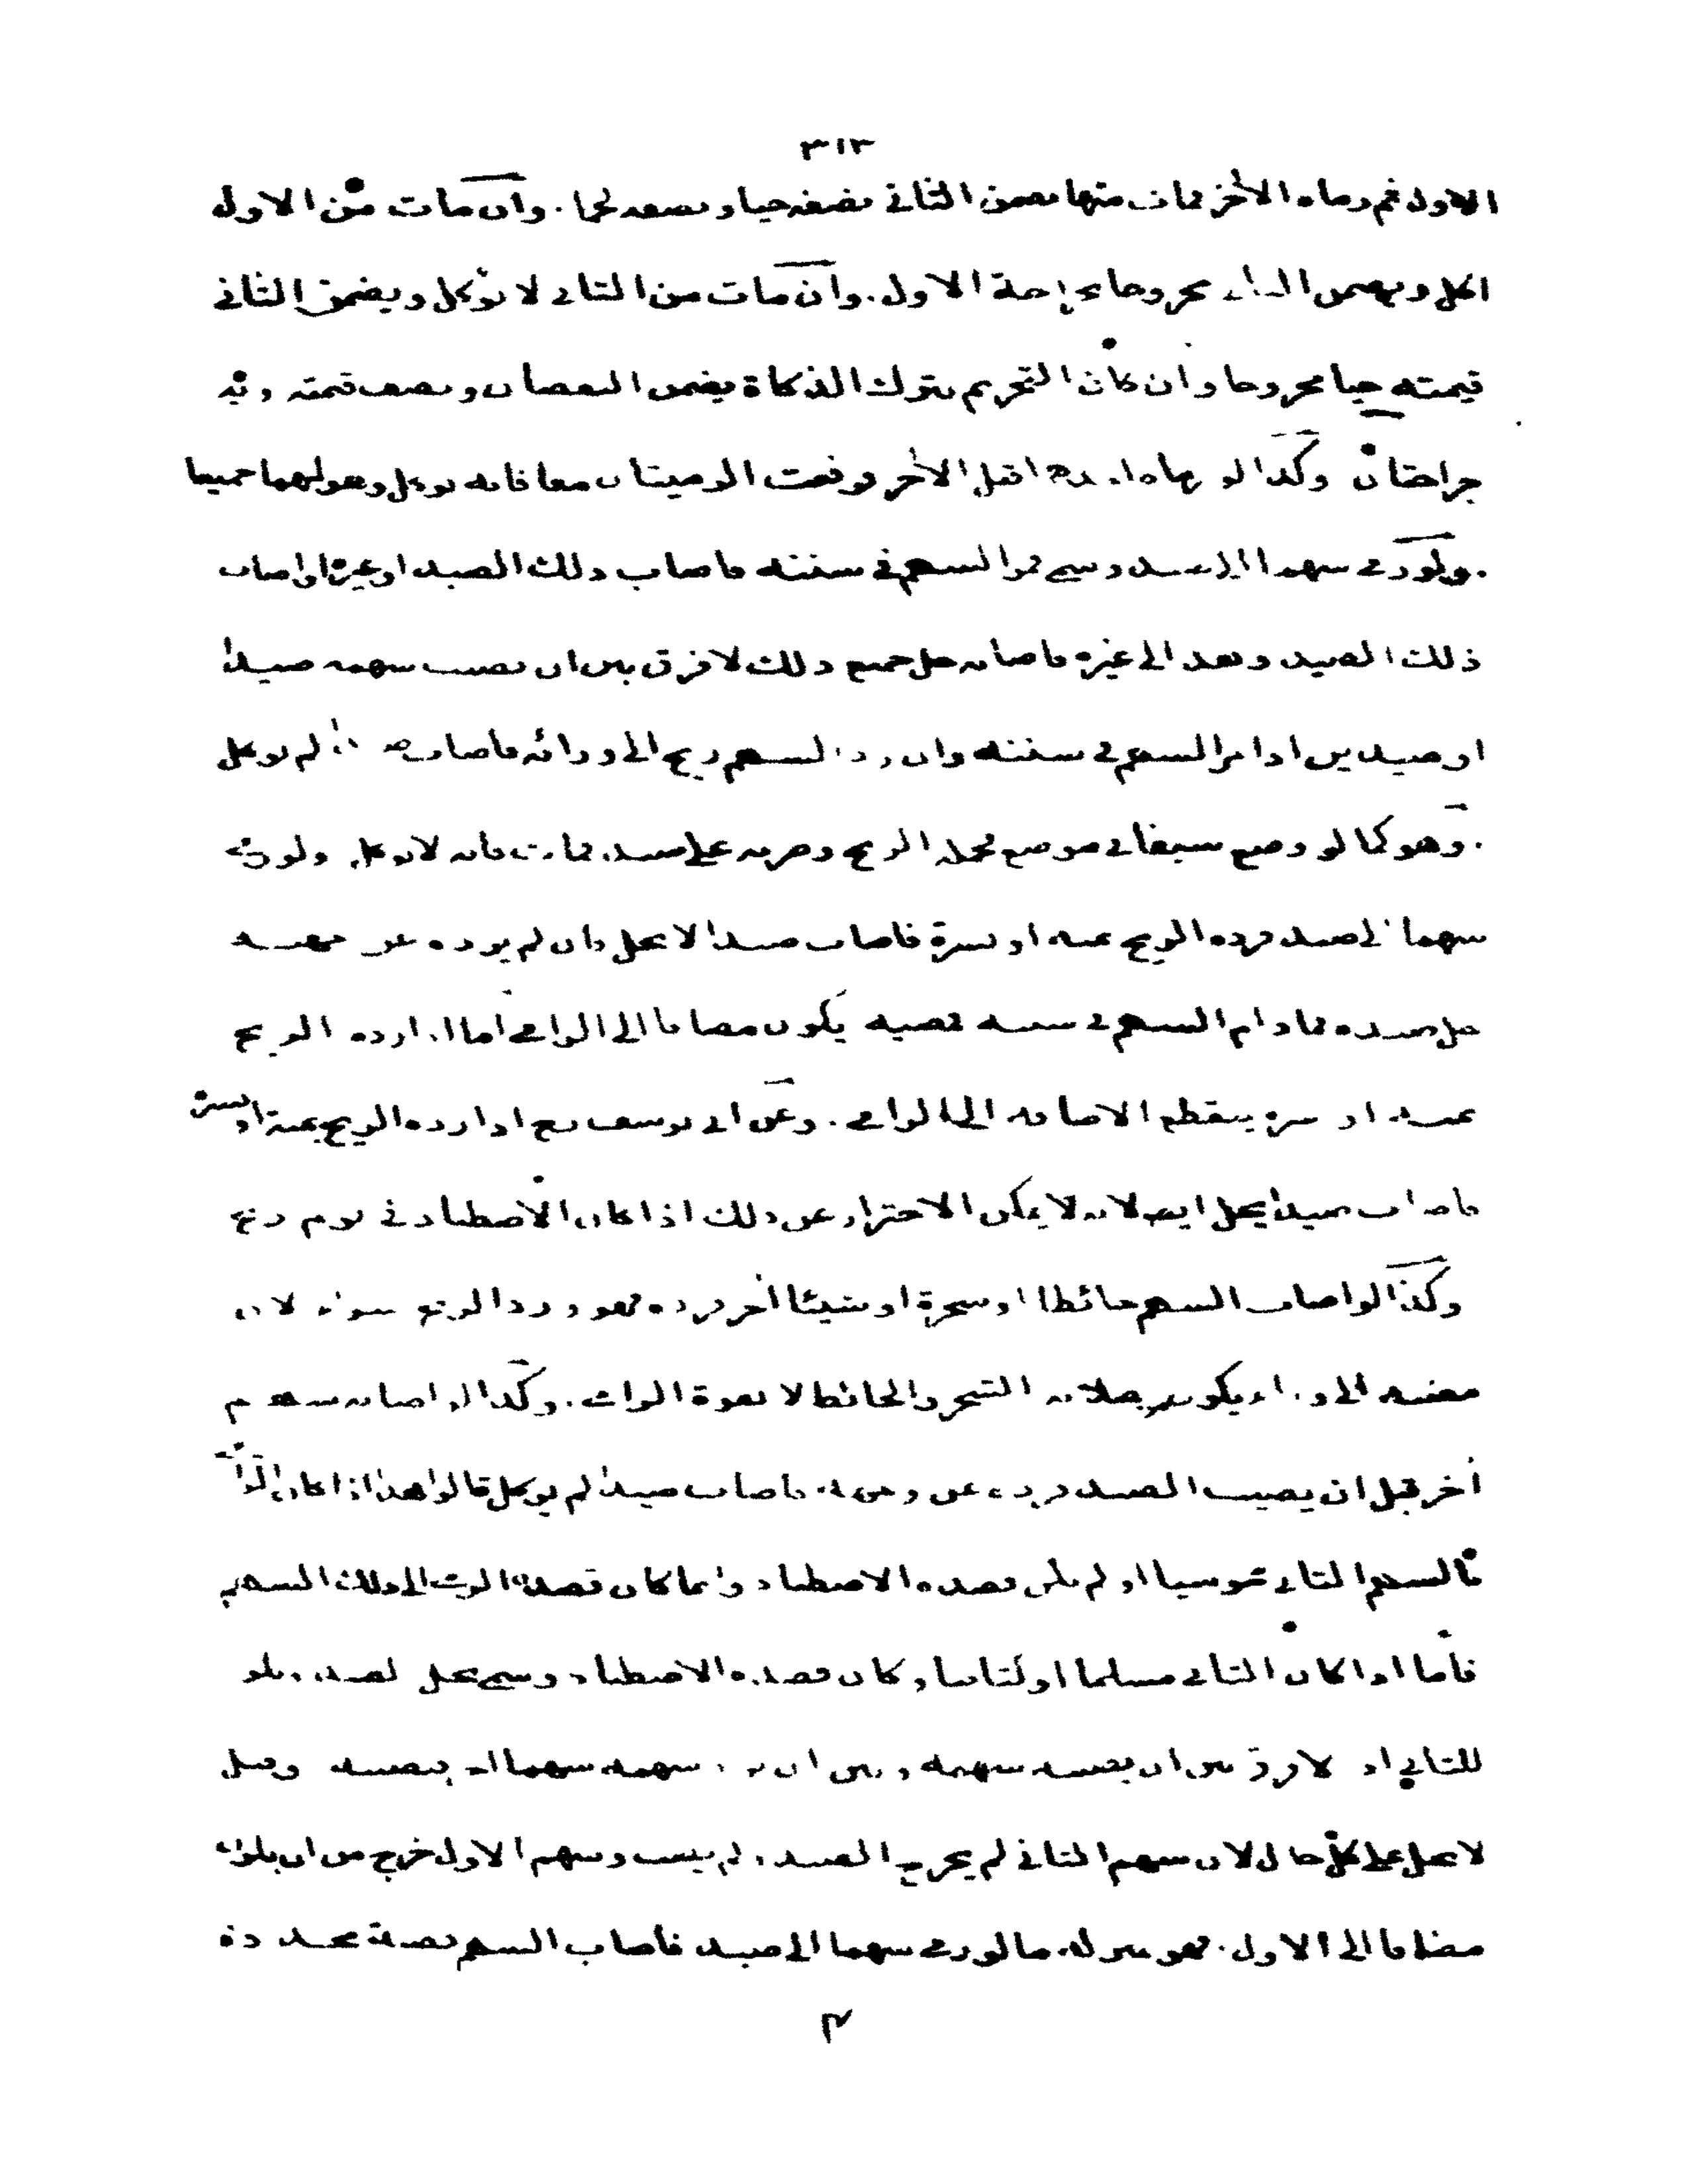 ٣١٣
الاول ثم رماه الاخر فمات منها يضمن الثاني نصفه حيا ونصفه لحما. وان مات من الاول
اكل ويضمن مجروحا بجراحة الاول. وان مات من الثاني لا يؤكل ويضمن الثاني
قيمته حيا مجروحا وان كان التحريم بترك الذكاة يضمن النقصان ونصف قيمته وبه
جراحتان وكذا لو رماه قبل الاخر فوقعت الرميتان معا فانه يؤكل وهو لهما جميعا
. ولو رمى سهما الى صيد وسمى فمر السهم في سننه فاصاب ذلك الصيد او غيره او اصاب
ذلك الصيد ونفد الى غيره فاصابه حل جميع ذلك لا فرق بين ان يصيب سهمه صيدا
او صيدين اذا مر السهم في سننه وان رد السهم ريح الى ورائه فاصاب لم يؤكل
. وهو كما لو وضع سيفا في موضع فحمله الريح وضربه على صيد فمات فانه لا يؤكل ولو رمى
سهما الى صيد فرده الريح يمنة او يسرة فاصاب صيدا لا يحل وان لم يرده عن جهته
حل صيده فما دام السهم في سننه فمضيه يكون مضافا الى الرامي اما اذا رده الريح
يمنة او يسرة ينقطع الاضافة الى الرامي. وعن ابي يوسف رح اذا رده الريح يمنة او يسرة
فاصاب صيدا يحل ايضا لانه لا يمكن الاحتراز عن ذلك اذا كان الاصطياد في يوم ريح
وكذا لو اصاب السهم حائطا او شجرة او شيئا اخر فرده فهو ورد الريح سواء لان
مضيه الى وراء يكون بصلابة الشجر والحائط لا بقوة الرامي. وكذا لو اصابه سهم
اخر قبل ان يصيب الصيد فرده عن وجهه فاصاب صيدا لم يؤكل قالوا هذا اذا كان الرامي
بالسهم الثاني مجوسيا او لم يكن قصده الاصطياد وانما كان قصده الرمي الى ذلك السهم
فاما اذا كان الثاني مسلما او كتابيا وكان قصده الاصطياد وسمى يحل الصيد
للثاني اذ لا فرق بين ان يصيبه سهمه وبين ان يرد سهمه سهما اخر فيصيبه وقيل
لا يحل على كل حال لان سهم الثاني لم يجرح الصيد ولم يصبه وسهم الاول خرج من ان يكون
مضافا الى الاول. فهو بمنزلة ما لو رمى سهما الى صيد فاصاب السهم قصبة محددة